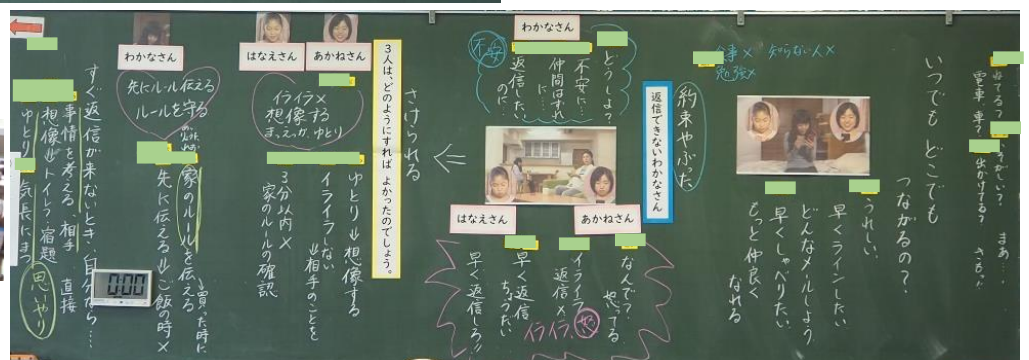 いつでも どこでも
つながるの?
食事× 知らない人×
勉強×
うれしい
早くラインしたい
どんなメールしよう
早くしゃべりたい
もっと仲良く
なれる
約束やぶった
返信できないわかなさん
わかなさん
どうしよ?
不安に…
仲間はずれ
に…
返信したい
のに…
不安
はなえさん
あかねさん
なんで?
やってる
イライラ
返信×
イライラ 怒
早く返信
ちょうだい
早く返信しろ!!
さけられる
3人は、どのようにすれば よかったのでしょう。
はなえさん
あかねさん
イライラ×
想像する
まぁえっか、ゆとり
ゆとり→想像する
イライラしない
→相手のことを
3分以内×
家のルールの確認
わかなさん
先にルール伝える
ルールを守る
家のルールを伝える
→買った時に
先に伝える→ご飯の時×
すぐ返信が来ないとき、自分なら…
事情を考える、相手 直接
想像→トイレ、宿題
ゆとり 気長にまつ
思いやり
0:00